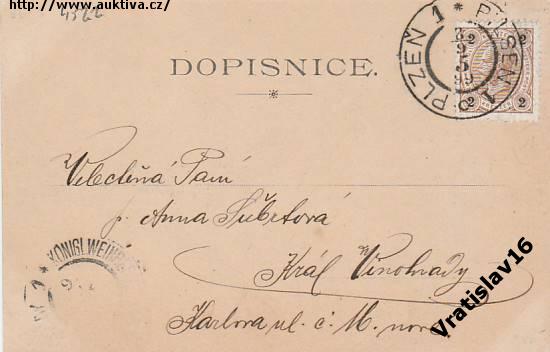 http://www.auktiva.cz/
4522
DOPISNICE.
PLZEŇ 1 * PILSEN 1
99
2 2
2 2
Velectěná Paní
p. Anna Šubrtová
Král Vinohrady
Karlova ul. č. M. nové
KÖNIGL WEINB
Vratislav16